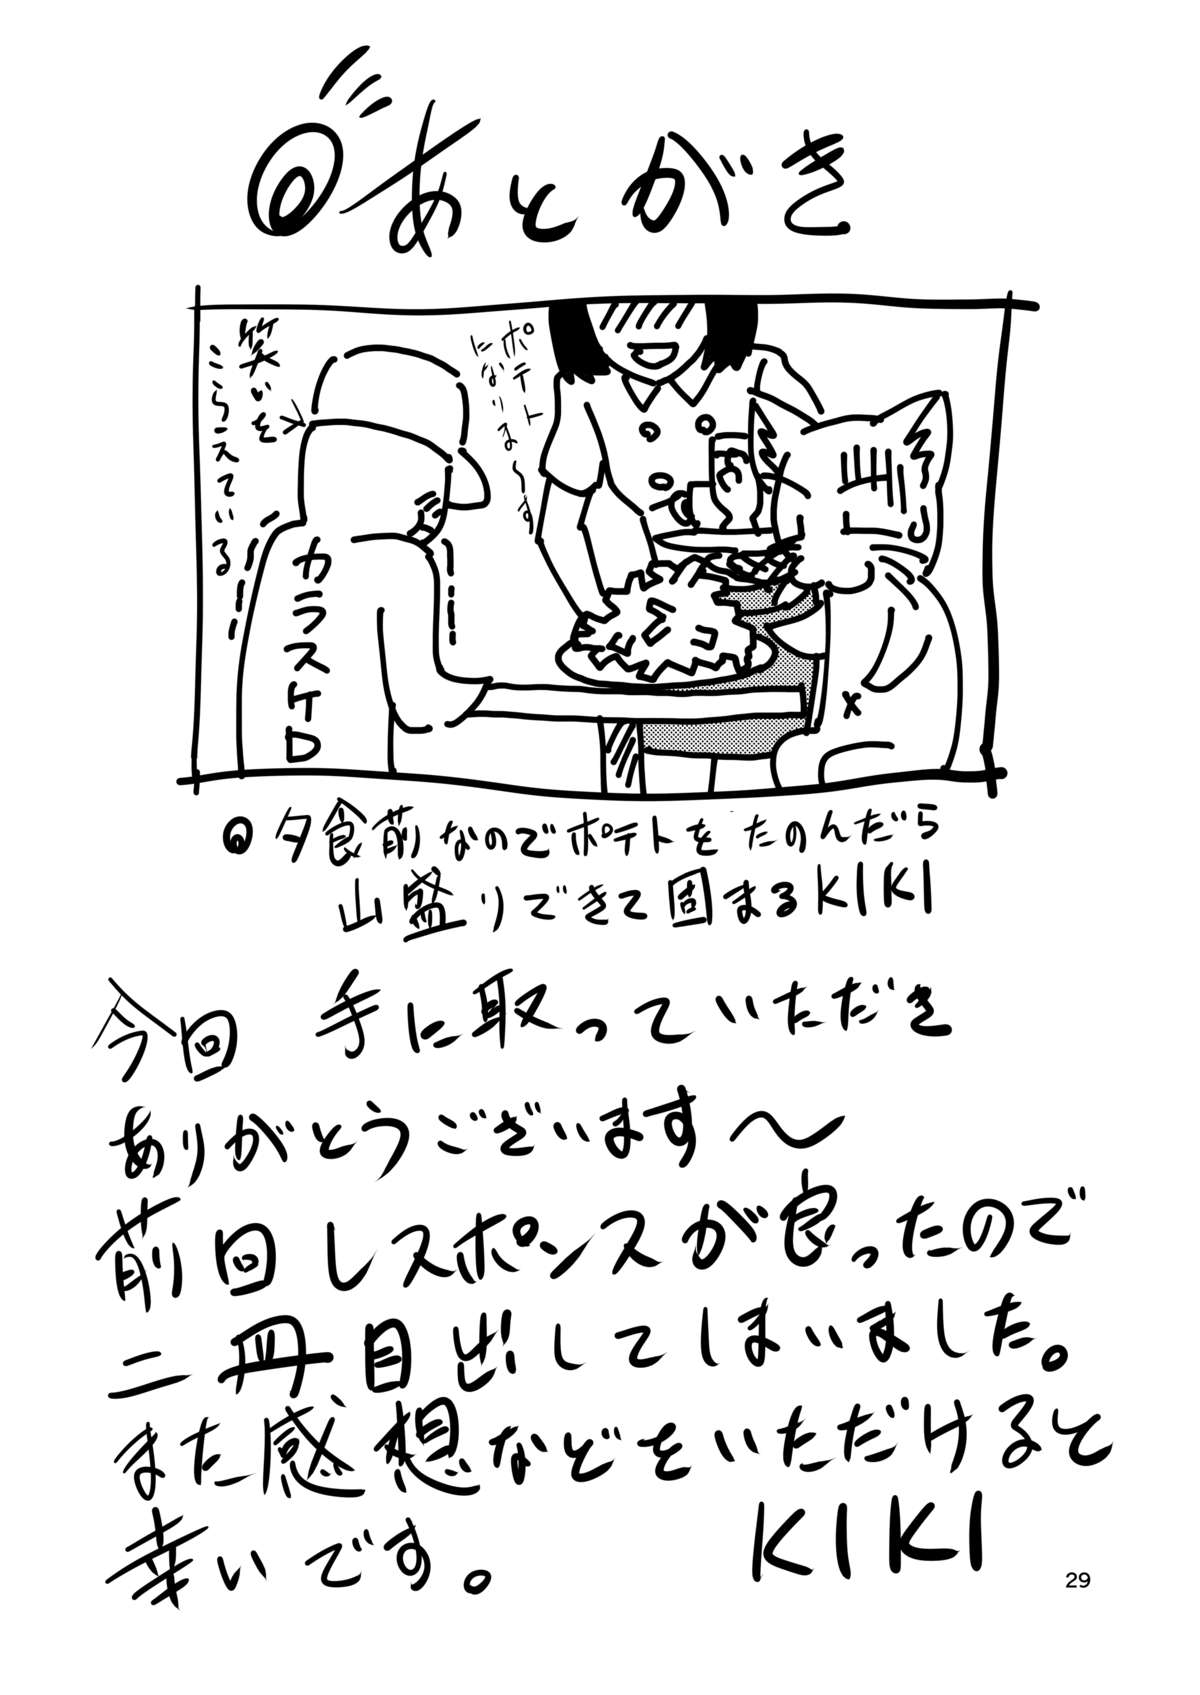 あとがき
ポテト
になりま～す
笑いを
こらえている
カラスケD
夕食前なのでポテトをたのんだら
山盛りできて固まるKIKI
今回 手に取っていただき
ありがとうございます～
前回レスポンスが良ったので
二冊目出してしまいました。
また感想などをいただけると
幸いです。 KIKI
29